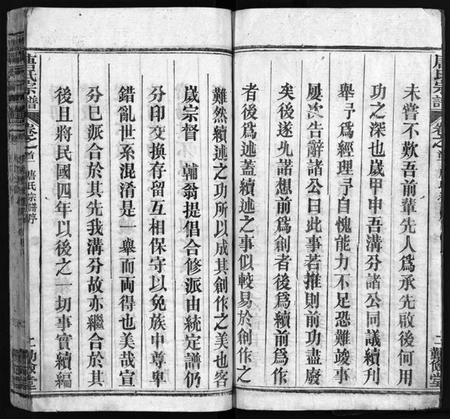 未嘗不歎吾前輩先人爲承先啟後何用
功之深也歲甲申吾溝分諸公同議續刋
舉予爲經理予自愧能力不足恐難竣事
屢次告辭諸公曰此事若推則前功盡廢
矣後遂允諾想前爲創者後爲續前爲作
者後爲述蓋續述之事似較易於創作之
難然續述之功所以成其創作之美也客
歲宗督 輔翁提倡合修派由統定譜仍
分印交換存留互相保守以免族中尊卑
錯亂世系混淆是一舉而兩得也美哉宣
分已派合於其先我溝分故亦繼合於其
後且將民國四年以後之一切事實續編
唐氏宗譜
卷之首
唐氏宗譜序
二
勤儉堂